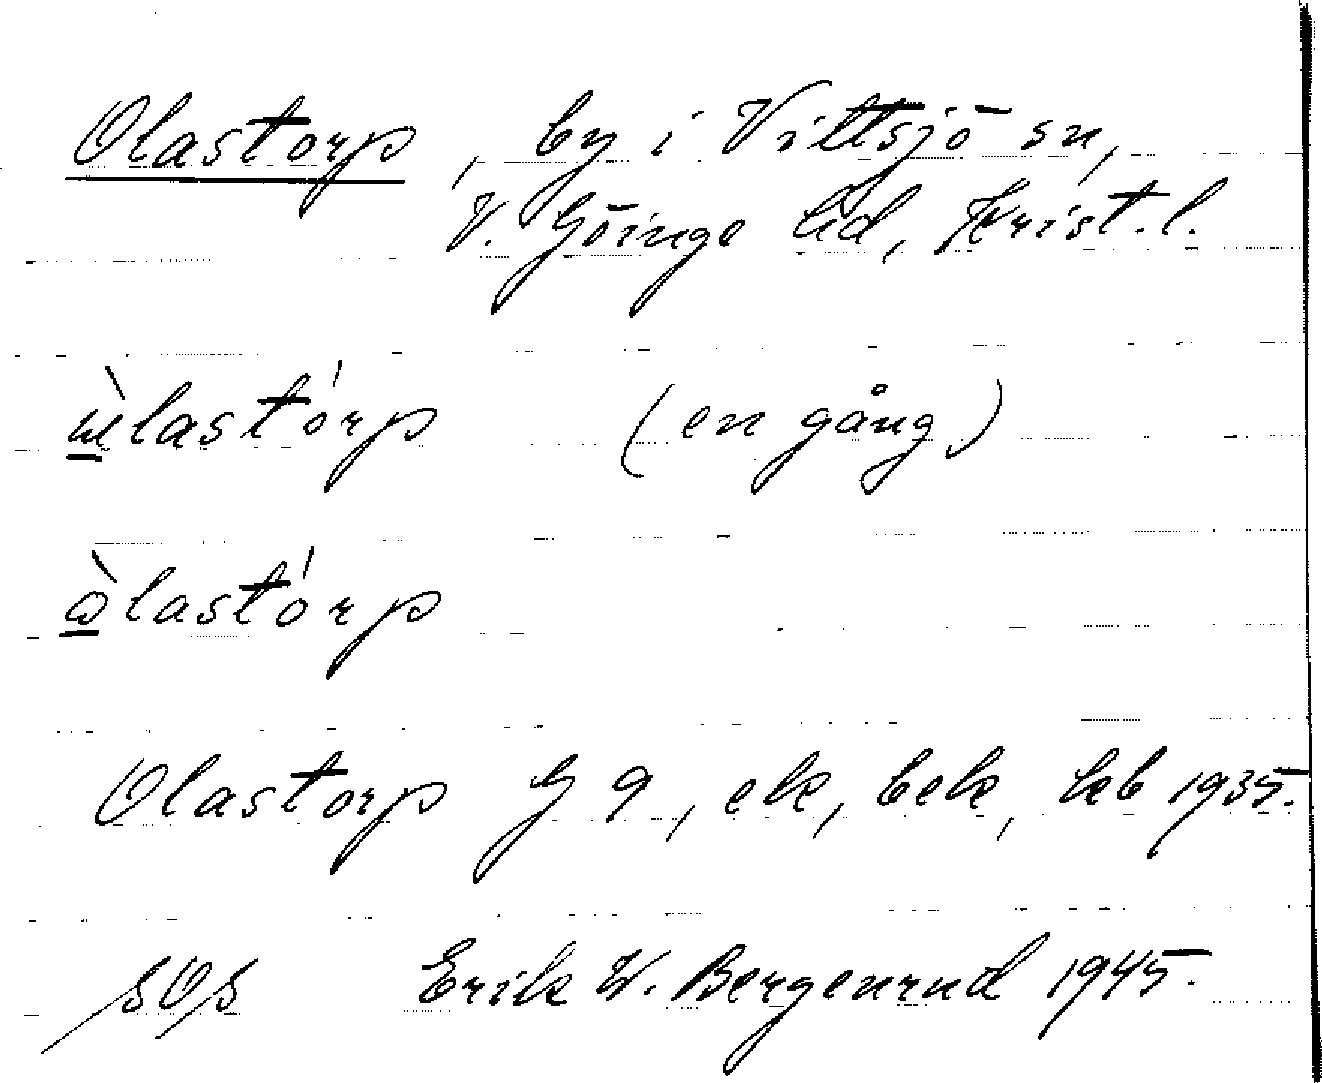 Olastorp, by i Vittsjö sn,
V. Göinge hd, Krist. l.
lastórp (en gång)
lastórp
Olastorp G 9, ek, bek, kb 1935.
Erik W. Bergenrud 1945.